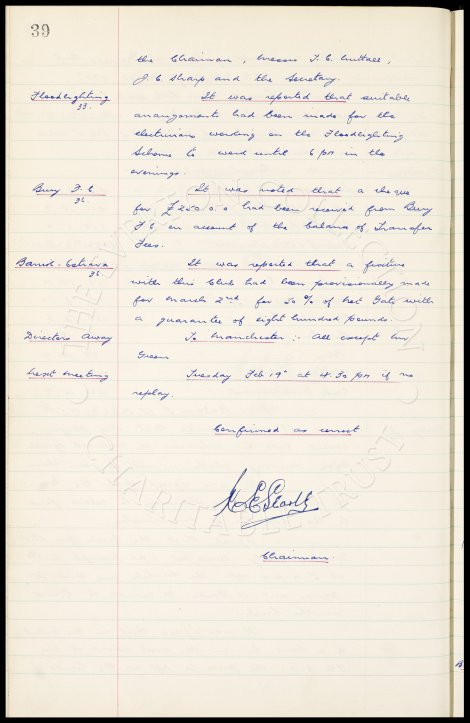 39
the Chairman, Messrs T. C. Nuttall,
J. C. Sharp and the Secretary.
Floodlighting 33. It was reported that suitable
arrangements had been made for the
electricians working on the Floodlighting
Scheme to work until 6 pm in the
evenings.
Bury F.C 36. It was noted that a cheque
for £250.0.0 had been received from Bury
F.C. on account of the balance of Transfer
Fees.
36. It was reported that a fixture
with this Club had been provisionally made
for March 2nd. for 50% of net Gate with
a guarantee of eight hundred pounds.
Directors Away To Manchester :- All except Mr
Green
Next meeting Tuesday Feb 19th at 4.30 pm if no
replay.
Confirmed as correct
Chairman.
CHARITABLE TRUST